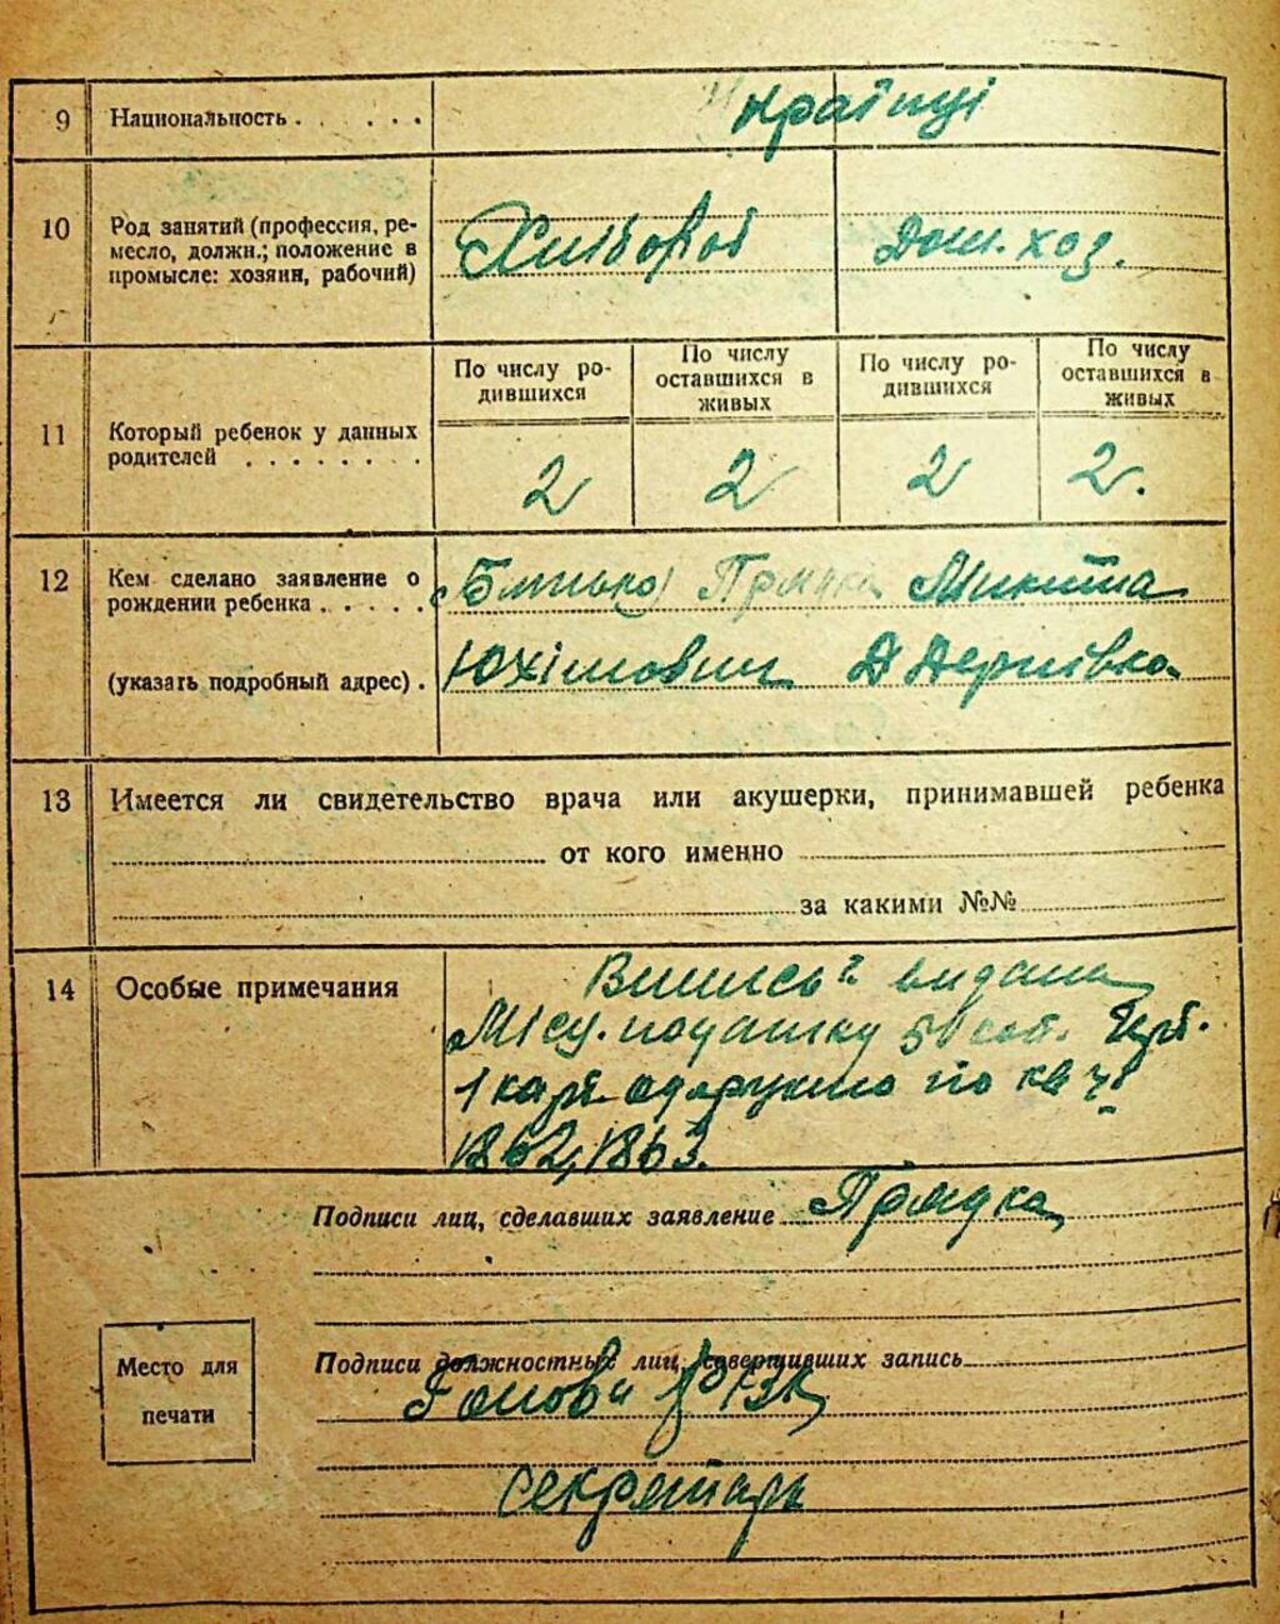 9 Национальность . . . . . Країнці
10 Род занятий (профессия, ре-
месло, должн.; положение в
промысле: хозяин, рабочий)
Хлібороб Дом. хоз.
11 Который ребенок у данных
родителей . . . . . . . .
По числу ро-
дившихся
По числу
оставшихся в
живых
По числу ро-
дившихся
По числу
оставшихся в
живых
2 2 2 2.
12 Кем сделано заявление о
рождении ребенка . . . . .
(Батько) Прядка Микита
(указать подробный адрес) .
Юхімович
13 Имеется ли свидетельство врача или акушерки, принимавшей ребенка
от кого именно
за какими №№
14 Особые примечания
видана
50 коп.
1 одержано по кв
1862, 1863.
Подписи лиц, сделавших заявление Прядка
Подписи должностных лиц, совершивших запись
Голова
Место для
печати
секретарь